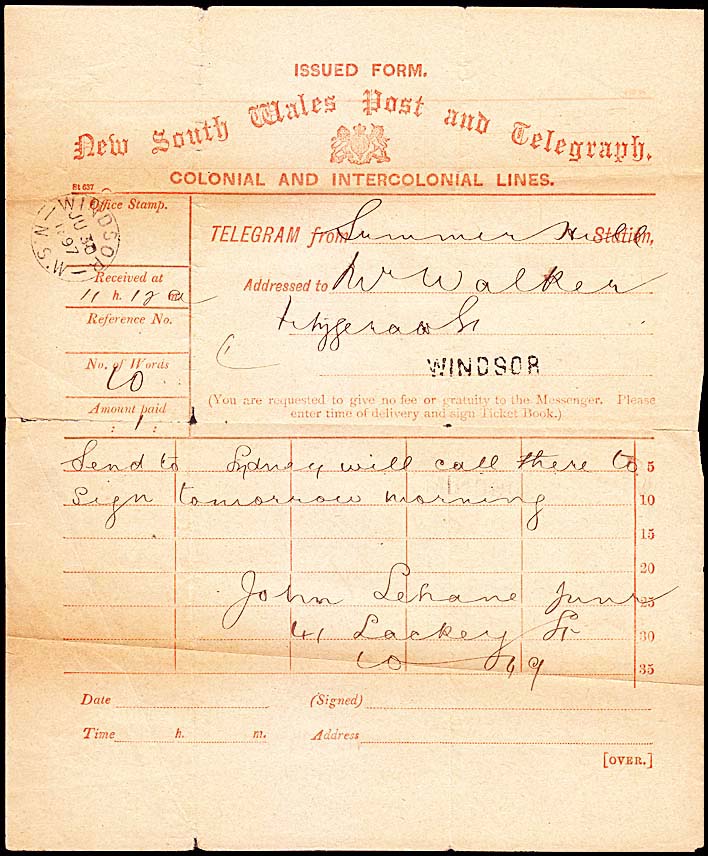 ISSUED FORM.
New South Wales Post and Telegraph.
COLONIAL AND INTERCOLONIAL LINES.
St 637
Office Stamp.
WINDSOR
JU 30
97
N.S.W
TELEGRAM from Summer Hill Station,
Received at
11 h. 12 m
Addressed to Mr Walker
Reference No.
Fitzgerald St
No. of Words
10
WINDSOR
Amount paid
: 1 :
(You are requested to give no fee or gratuity to the Messenger. Please
enter time of delivery and sign Ticket Book.)
Send to Sydney will call there to 5
sign tomorrow morning 10
15
20
John Lehane Junr 25
41 Lackey St 30
10 49 35
Date (Signed)
Time h. m. Address
[OVER.]